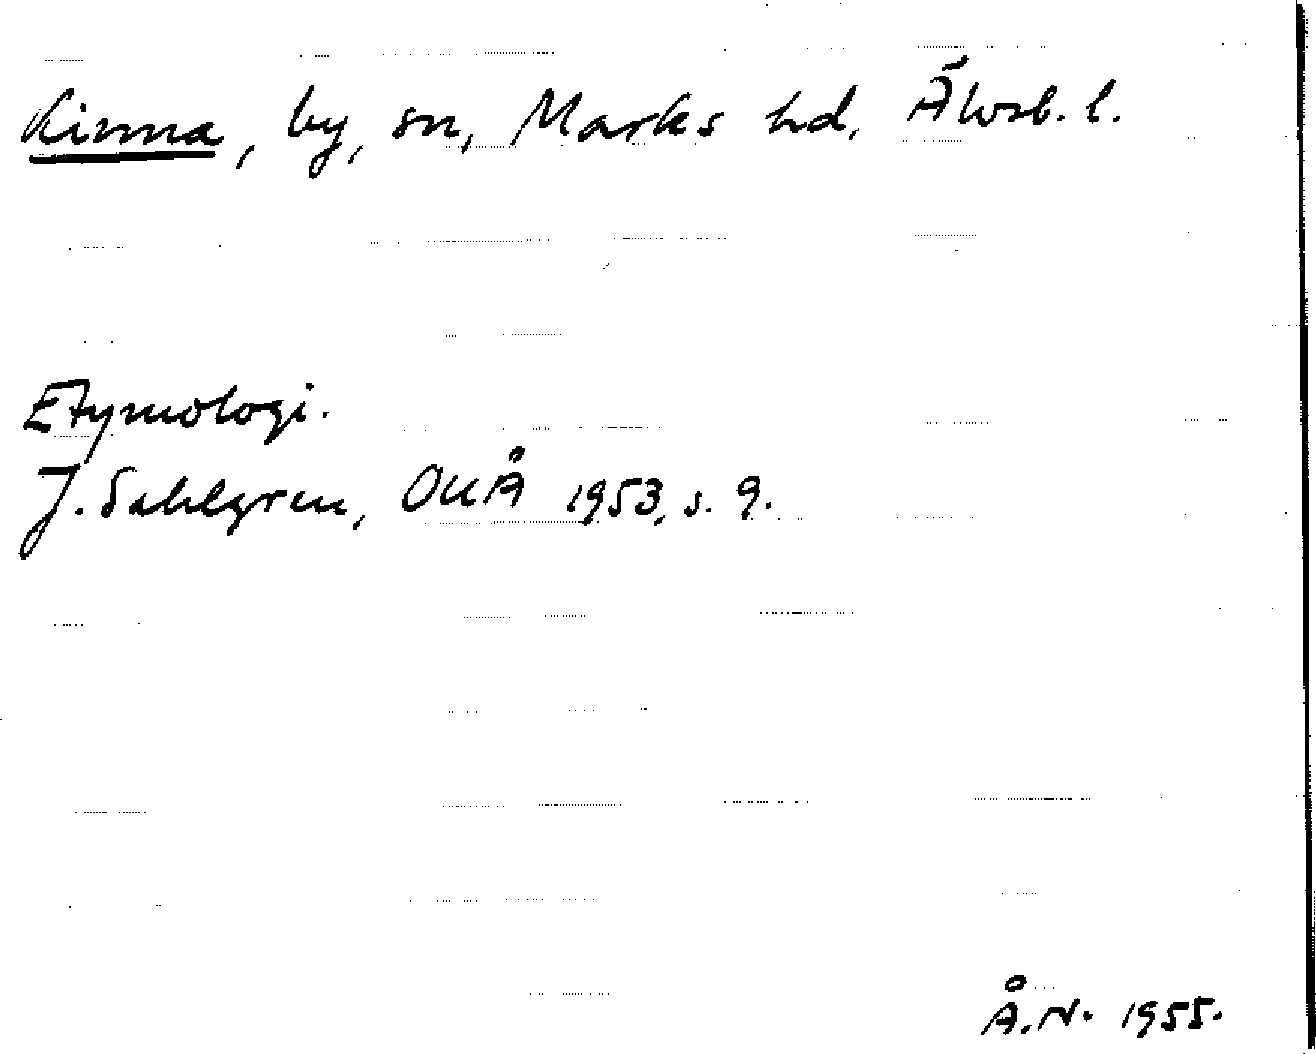 Kinna, by, sn, Marks hd, Älvsb. l.
Etymologi.
J. Sahlgren, OUÅ 1953, s. 9.
Å.N. 1955.